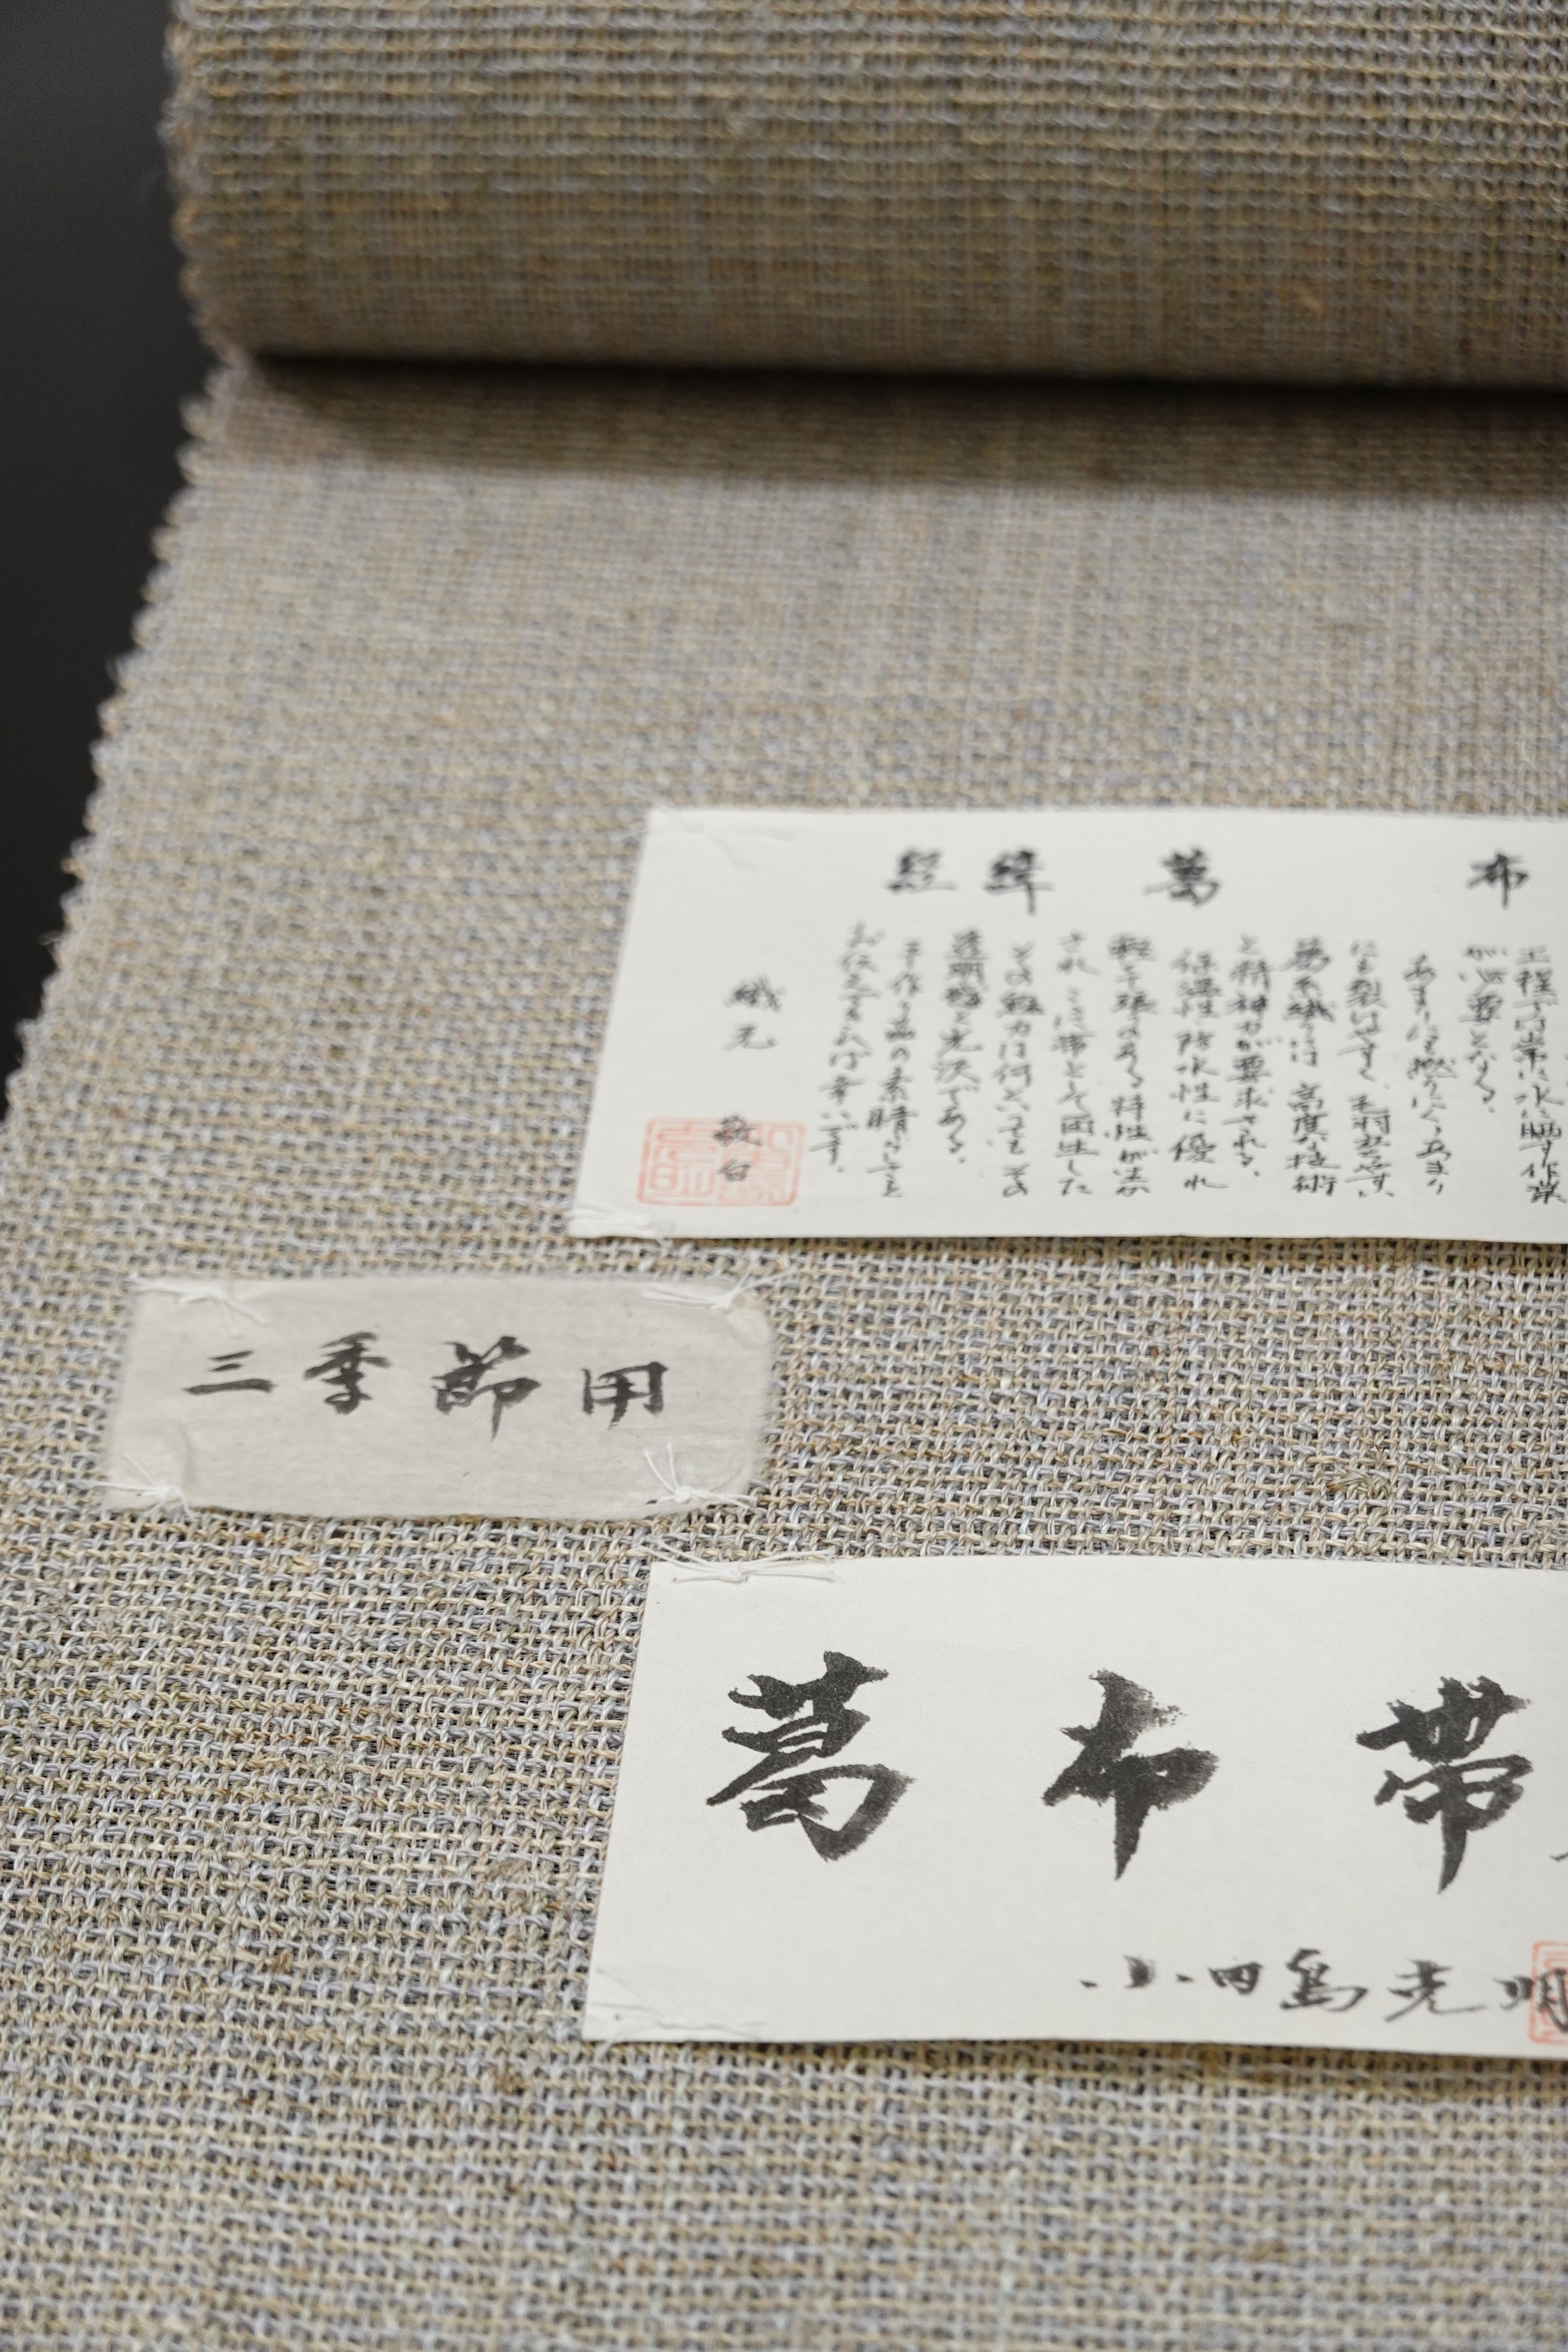 経緯 葛 布
工程では常に水に晒す作業
が必要となる。
にも裂けやすく毛羽立ちやすい
葛布織りは高度な技術
と精神力が要求される。
保湿性 防水性に優れ
軽く張りのある特性が活か
され ここに帯として再生した
その魅力は何といってもその
透明感と光沢である。
手作り品の素晴らしさを
お伝えできれば幸いです。
織元 敬白
三季節用
葛布帯
小田島克明